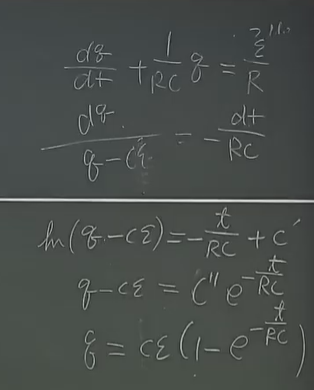 dq/dt + 1/RC q = ℰ/R
dq/(q - Cℰ) = - dt/RC
ln(q - Cℰ) = - t/RC + C'
q - Cℰ = C'' e^(-t/RC)
q = Cℰ(1 - e^(-t/RC))